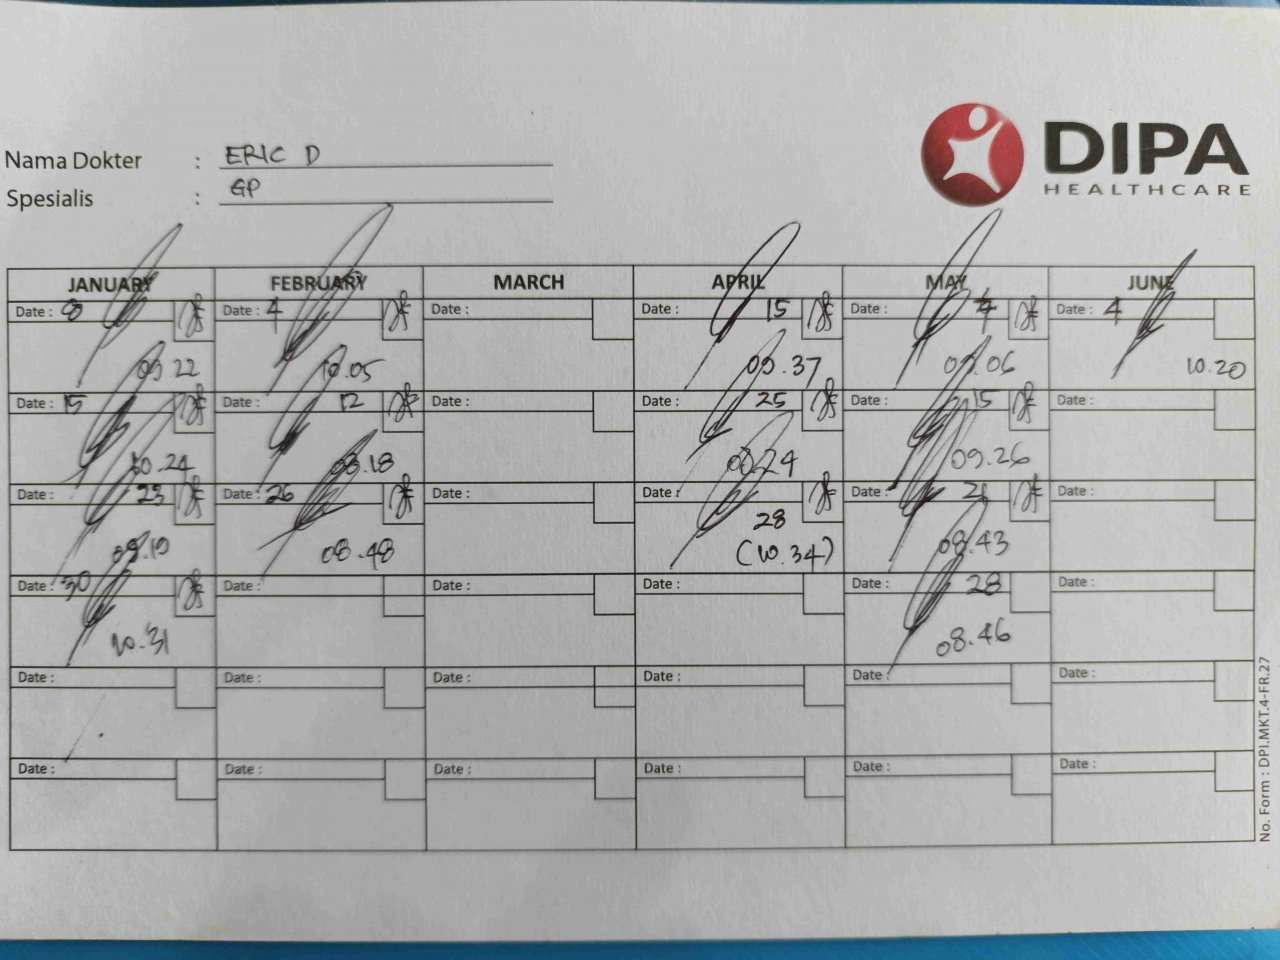 DIPA
HEALTHCARE
Nama Dokter : ERIC D
Spesialis : GP
JANUARY FEBRUARY MARCH APRIL MAY JUNE
Date : 8 Date : 4 Date : Date : 15 Date : Date : 4
09.22 10.05 09.37 09.06 10.20
Date : 15 Date : 12 Date : Date : 25 Date : 15 Date :
10.24 08.18 08.24 09.26
Date : 23 Date : 26 Date : Date : 28 Date : Date :
08.48 (10.34) 08.43
Date : 30 Date : Date : Date : Date : 28 Date :
10.31 08.46
Date : Date : Date : Date : Date : Date :
Date : Date : Date : Date : Date : Date :
No. Form : DPI.MKT.4-FR.27